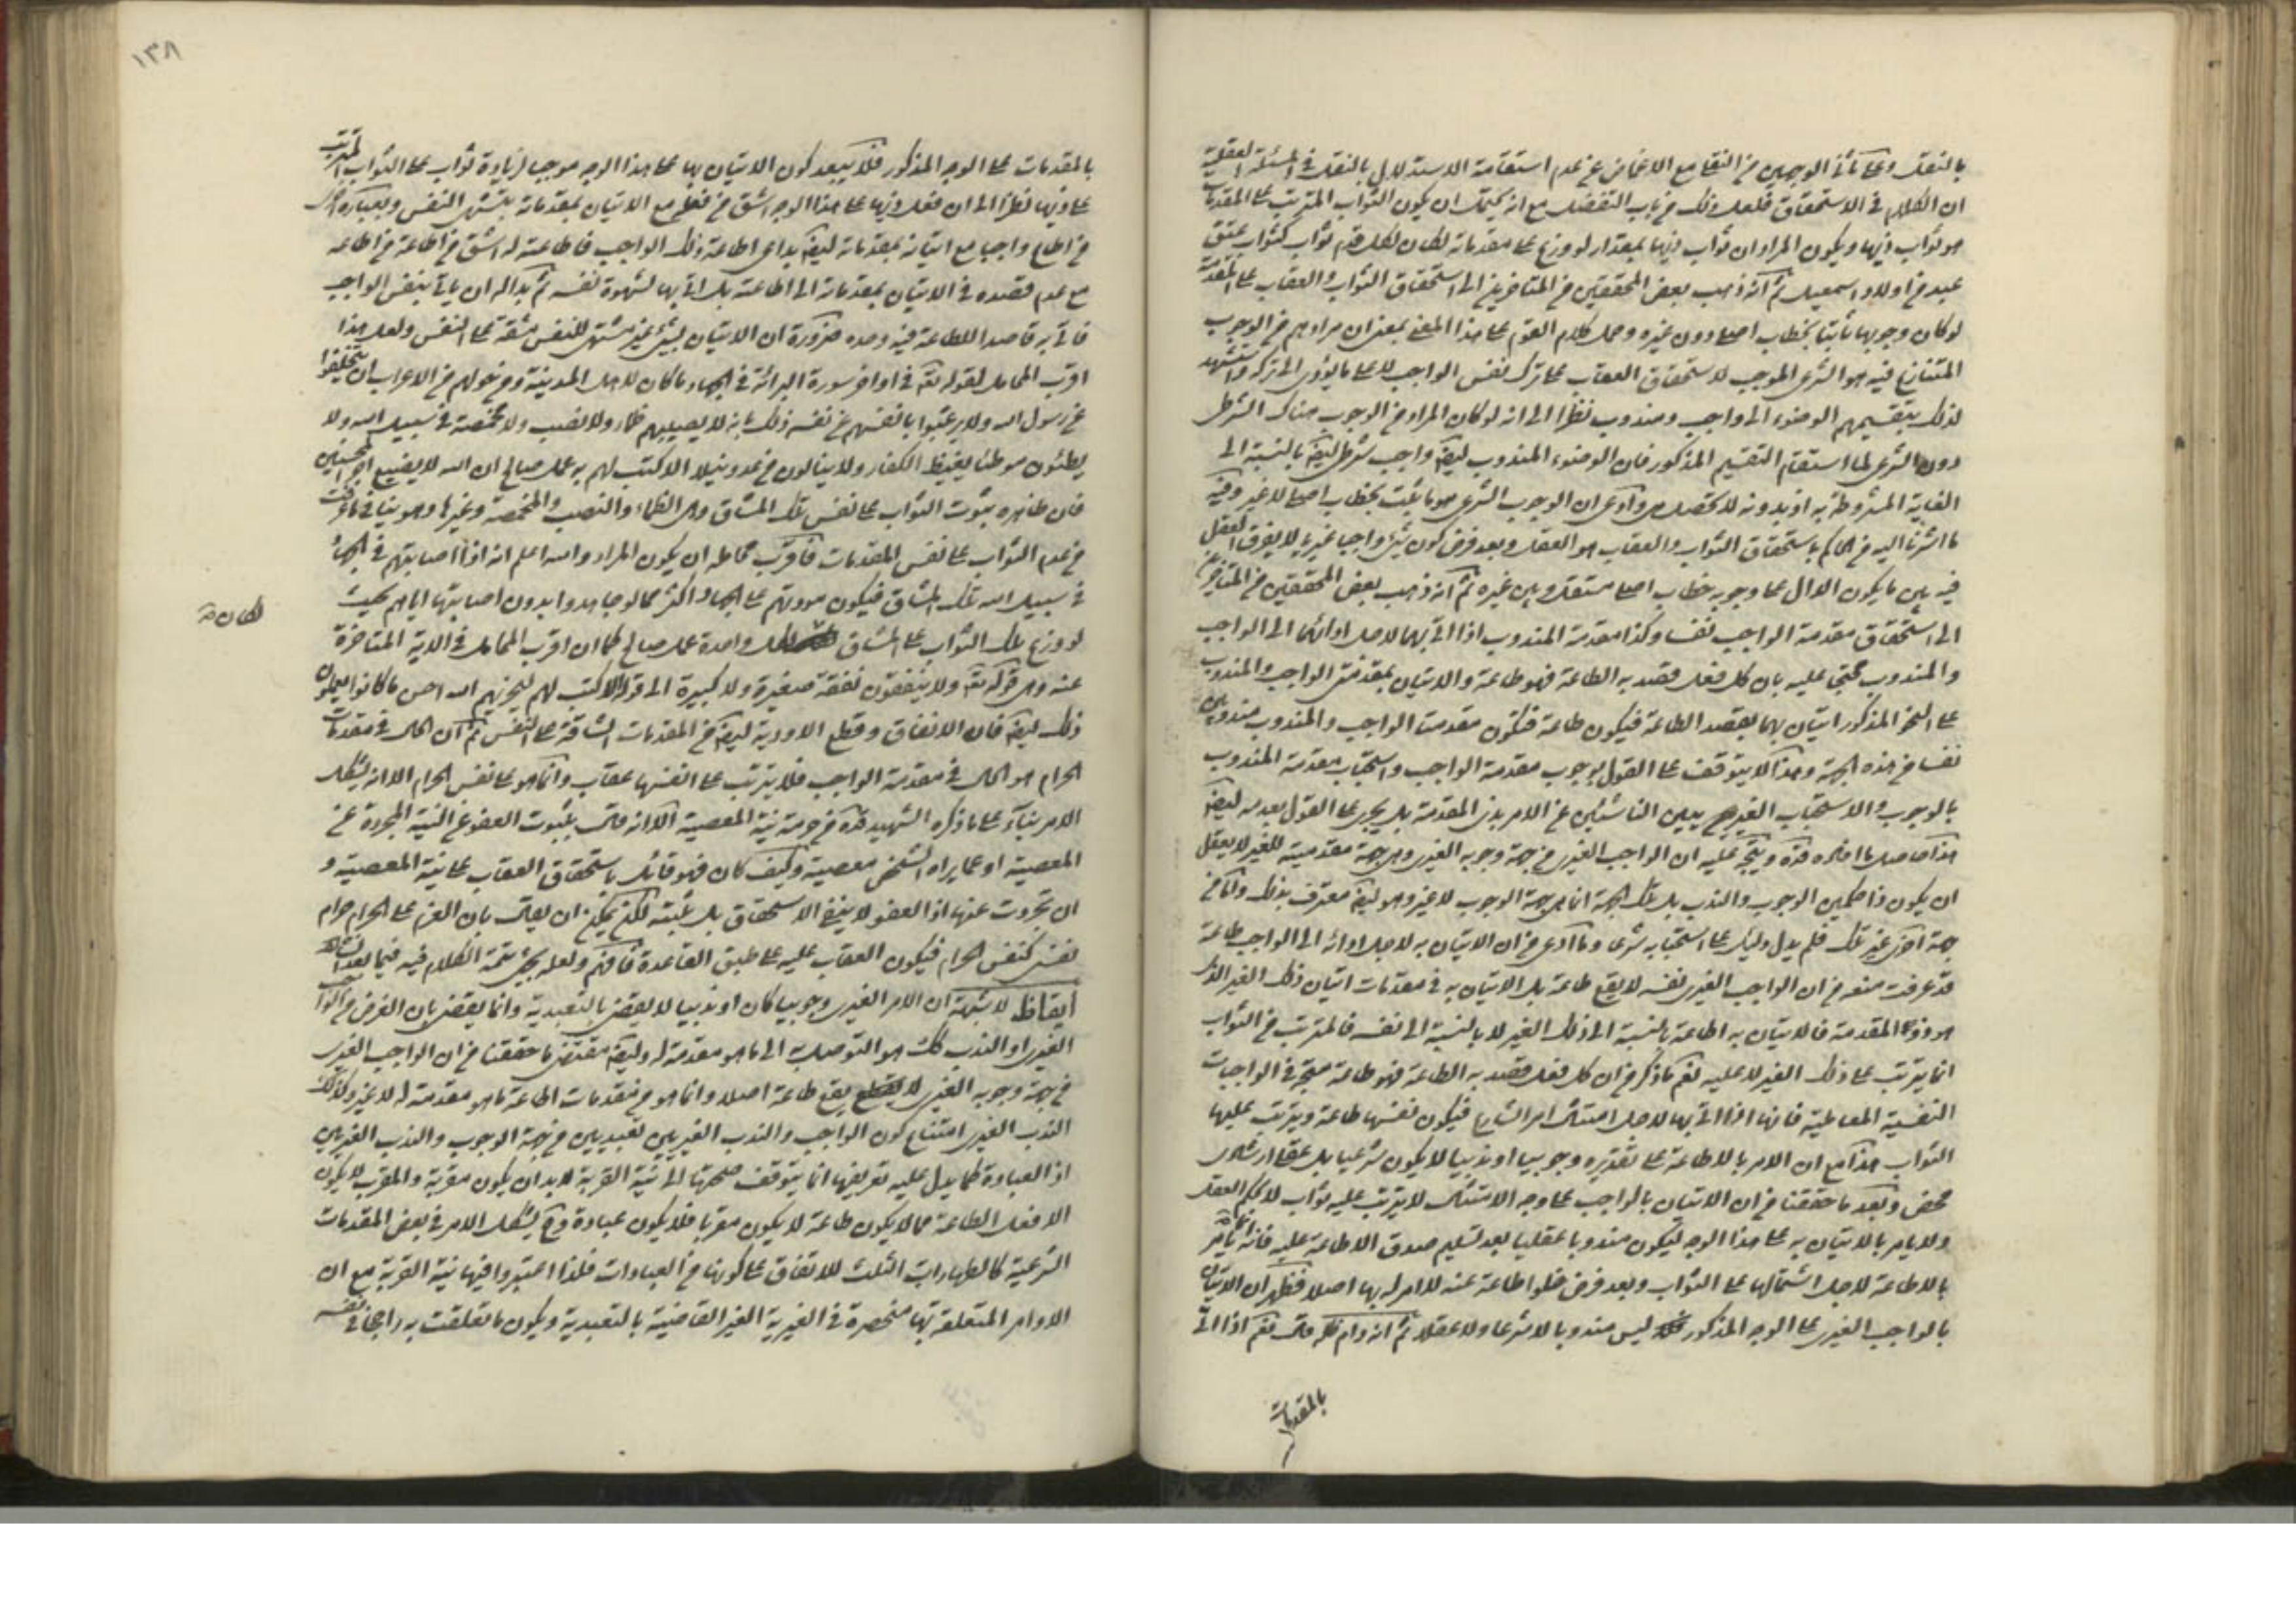 بالنقل وعلى ثانى الوجهين من النقل مع الاغماض عن عدم استقامة الاستدلال بالنقل فى المسئلة العقلية
ان الكلام فى الاستحقاق فلعل ذلك من باب التفضل مع انه يحتمل ان يكون الثواب المترتب على المقدمات
هو ثواب ذيها ويكون المراد ان ثواب ذيها بمقدار لو وزع على مقدماته لكان لكل قدم ثواب كثواب عتق
عبد من اولاد اسمعيل ثم انه ذهب بعض المحققين من المتاخرين الى استحقاق الثواب والعقاب على المقدمة
لو كان وجوبها ثابتا بخطاب اصلى دون غيره وحمل كلام القوم على هذا المعنى بمعنى ان مرادهم من الوجوب
المتنازع فيه هو الشرعى الموجب لاستحقاق العقاب على ترك نفس الواجب لا على ما يؤدى الى تركه واستشهد
لذلك بتقسيمهم الوضوء الى واجب ومندوب نظرا الى انه لو كان المراد من الوجوب هناك الشرطى
دون الشرعى لما استقام التقسيم المذكور فان الوضوء المندوب ايضا واجب شرطى ايضا بالنسبة الى
الغاية المشروطة به اذ بدونه لا تحصل وادعى ان الوجوب الشرعى هو ما ثبت بخطاب اصلى لا غير وفيه
ما اشرنا اليه من الحاكم باستحقاق الثواب والعقاب هو العقل وبعد فرض كون شىء واجبا غيريا لا يفرق العقل
فيه بين ما يكون الدال على وجوبه خطاب اصلى مستقل وبين غيره ثم انه ذهب بعض المحققين من المتاخرين
الى استحقاق مقدمة الواجب نفسا وكذا مقدمة المندوب اذا اتى بهما لاجل ادائهما الى الواجب
والمندوب محتجا عليه بان كل فعل قصد به الطاعة فهو طاعة والاتيان بمقدمتى الواجب والمندوب
على النحو المذكور اتيان بهما بقصد الطاعة فيكون طاعة فتكون مقدمتا الواجب والمندوب مندوبتين
نفسا من هذه الجهة وهذا لا يتوقف على القول بوجوب مقدمة الواجب واستحباب مقدمة المندوب
بالوجوب والاستحباب الغيريين الناشئين عن الامر بذى المقدمة بل يجرى على القول بعدمه ايضا
هذا حاصل ما افاده قده ويتجه عليه ان الواجب الغيرى من جهة وجوبه الغيرى وهى جهة مقدميته للغير لا يعقل
ان يكون ذا حكمين الوجوب والندب بل تلك الجهة انما هى جهة الوجوب لا غير وهو ايضا معترف بذلك واما من
جهة اخرى غير تلك فلم يدل دليل على استحبابه شرعا وما ادعى من ان الاتيان به لاجل ادائه الى الواجب طاعة
قد عرفت منعه من ان الواجب الغيرى نفسه لا يقع طاعة بل الاتيان به فى مقدمات اتيان ذلك الغير الذى
هو ذو المقدمة فالاتيان به اطاعة بالنسبة الى ذلك الغير لا بالنسبة الى نفسه فالمترتب من الثواب
انما يترتب على ذلك الغير لا عليه نعم ما ذكر من ان كل فعل قصد به الطاعة فهو طاعة متجه فى الواجبات
النفسية المعاملية فانها اذا اتى بها لاجل امتثال امر الشارع فيكون نفسها طاعة ويترتب عليها
الثواب هذا مع ان الامر بالاطاعة على تقديره وجوبيا او ندبيا لا يكون شرعيا بل عقلى ارشادى
محض وبعد ما حققنا من ان الاتيان بالواجب على وجه الامتثال لا يترتب عليه ثواب لا يحكم العقل
ولا يامر بالاتيان به على هذا الوجه ليكون مندوبا عقليا بعد تسليم صدق الاطاعة عليه فانه انما يامر
بالاطاعة لاجل اشتمالها على الثواب وبعد فرض خلو اطاعة عنه لا امر له بها اصلا فظهر ان الاتيان
بالواجب الغيرى على الوجه المذكور ليس مندوبا لا شرعا ولا عقلا ثم انه دام ظله قال نعم اذا اتى
بالمقدمات
١٣٨
بالمقدمات على الوجه المذكور فلا يبعد كون الاتيان بها على هذا الوجه موجبا لزيادة ثواب على الثواب المترتب
على ذيها نظرا الى ان فعل ذيها على هذا الوجه اشق من فعله مع الاتيان بمقدماته بتشهى النفس وبعبارة اخرى
من اطاع واجبا مع اتيانه بمقدماته ايضا بداعى اطاعة ذلك الواجب فاطاعته له اشق من اطاعة من اطاعه
مع عدم قصده فى الاتيان بمقدماته الى اطاعته بل اتى بها لشهوة نفسه ثم بدا له ان ياتى بنفس الواجب
فاتى به قاصدا للطاعة فيه وحده ضرورة ان الاتيان بشىء غير مشتهى للنفس مشقة على النفس ولعل هذا
اقرب المحامل لقوله تعالى فى اواخر سورة البرائة فى الجهاد ما كان لاهل المدينة ومن حولهم من الاعراب ان يتخلفوا
عن رسول الله ولا يرغبوا بانفسهم عن نفسه ذلك بانه لا يصيبهم ظما ولا نصب ولا مخمصة فى سبيل الله ولا
يطئون موطئا يغيظ الكفار ولا ينالون من عدو نيلا الا كتب لهم به عمل صالح ان الله لا يضيع اجر المحسنين
فان ظاهره ثبوت الثواب على نفس تلك المشاق وهى الظماء والنصب والمخمصة وغيرها وهو ينافى ما عرفت
من عدم الثواب على نفس المقدمات فاقرب محامله ان يكون المراد والله اعلم انه اذا اصابتهم فى الجهاد
فى سبيل الله تلك المشاق فيكون على الجهاد اكثر مما لو جاهدوا بدون اصابتها اياهم بحيث
لو وزع تلك الثواب على المشاق لكل واحدة عمل صالح كما ان اقرب المحامل فى الاية المتاخرة
لكان
عنه وهى قوله تعالى ولا ينفقون نفقة صغيرة ولا كبيرة الى قوله الا كتب لهم ليجزيهم الله احسن ما كانوا يعملون
ذلك ايضا فان الانفاق وقطع الاودية ايضا من المقدمات الشاقة على النفس ثم ان الحال فى مقدمات
الحرام هو الحال فى مقدمة الواجب فلا يترتب على انفسها عقاب وانما هو على نفس الحرام الا انه يشكل
الامر بناء على ما ذكره الشهيد قده من حرمة نية المعصية الا انه قال بثبوت العفو عن النية المجردة عن
المعصية او عما يراه الشخص معصية وكيف كان فهو قائل باستحقاق العقاب على نية المعصية و
ان تجردت عنها اذ العفو لا ينفى الاستحقاق بل يثبته لكن يمكن ان يقال بان العزم على الحرام حرام
نفسى كنفس الحرام فيكون العقاب عليه على طبق القاعدة فافهم ولعله يجىء تتمة الكلام فيه فيما بعد انشاء الله
ايقاظ لا شبهة ان الامر الغيرى وجوبيا كان او ندبيا لا يقضى بالتعبدية وانما يقضى بان الغرض من الواجب
الغيرى او الندب كك هو التوصل به الى ما هو مقدمة له وايضا مقتضى ما حققنا من ان الواجب الغيرى
من جهة وجوبه الغيرى لا يقع طاعة اصلا وانما هو من مقدمات اطاعة ما هو مقدمة له لا غير وكذلك
الندب الغيرى امتناع كون الواجب والندب الغيريين تعبديين من جهة الوجوب والندب الغيريين
اذ العبادة كما يدل عليه تعريفها انما يتوقف صحتها الى نية القربة لا بد ان يكون مقربة والمقرب لا يكون
الا فعل الطاعة فما لا يكون طاعة لا يكون مقربا فلا يكون عبادة وح يشكل الامر فى بعض المقدمات
الشرعية كالطهارات الثلث للاتفاق على كونها من العبادات فلذا اعتبروا فيها نية القربة مع ان
الاوامر المتعلقة بها منحصرة فى الغيرية الغير القاضية بالتعبدية ويكون ما تعلقت به راجحا فى نفسه